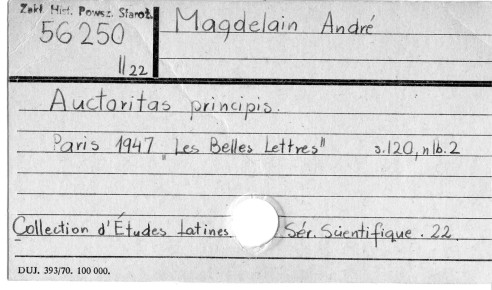 Zakł. Hist. Powsz. Staroż.
56250
II 22
Magdelain André
Auctoritas principis.
Paris 1947 „Les Belles Lettres" s.120, nlb.2
Collection d'Études Latines Sér. Scientifique. 22.
DUJ. 393/70. 100 000.